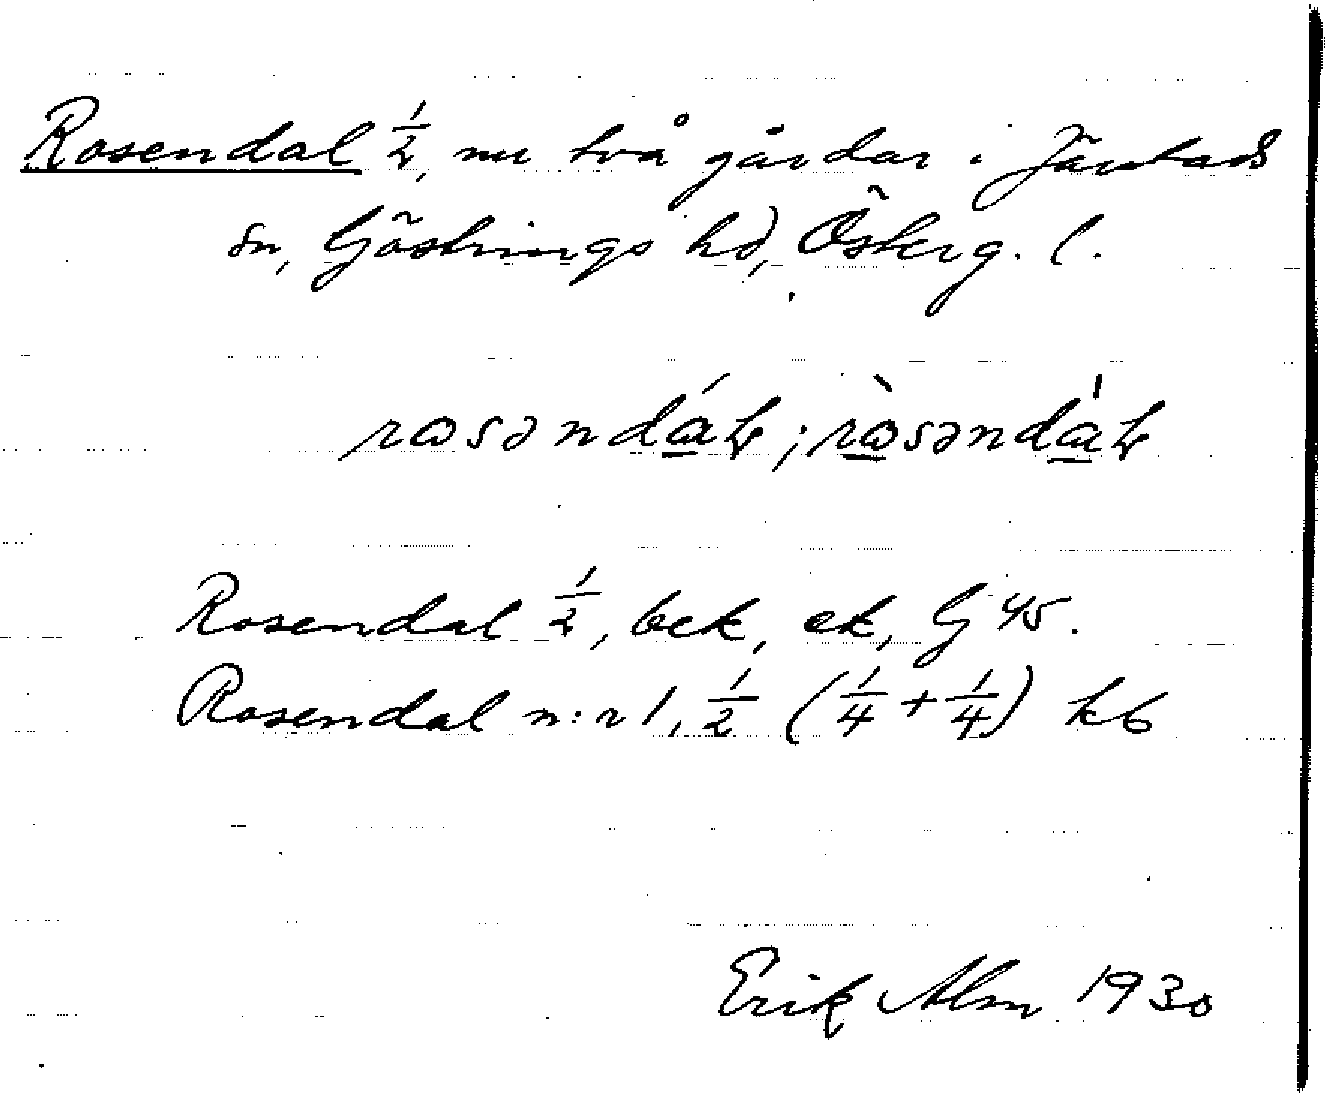 Rosendal ½, nu två gårdar i Järstads
sn, Göstrings hd, Österg. l.
rosəndáɫ; ròsəndàɫ
Rosendal ½, bek, ek, Gj 45.
Rosendal n:r 1, ½ (¼ + ¼) kb
Erik Alm 1930